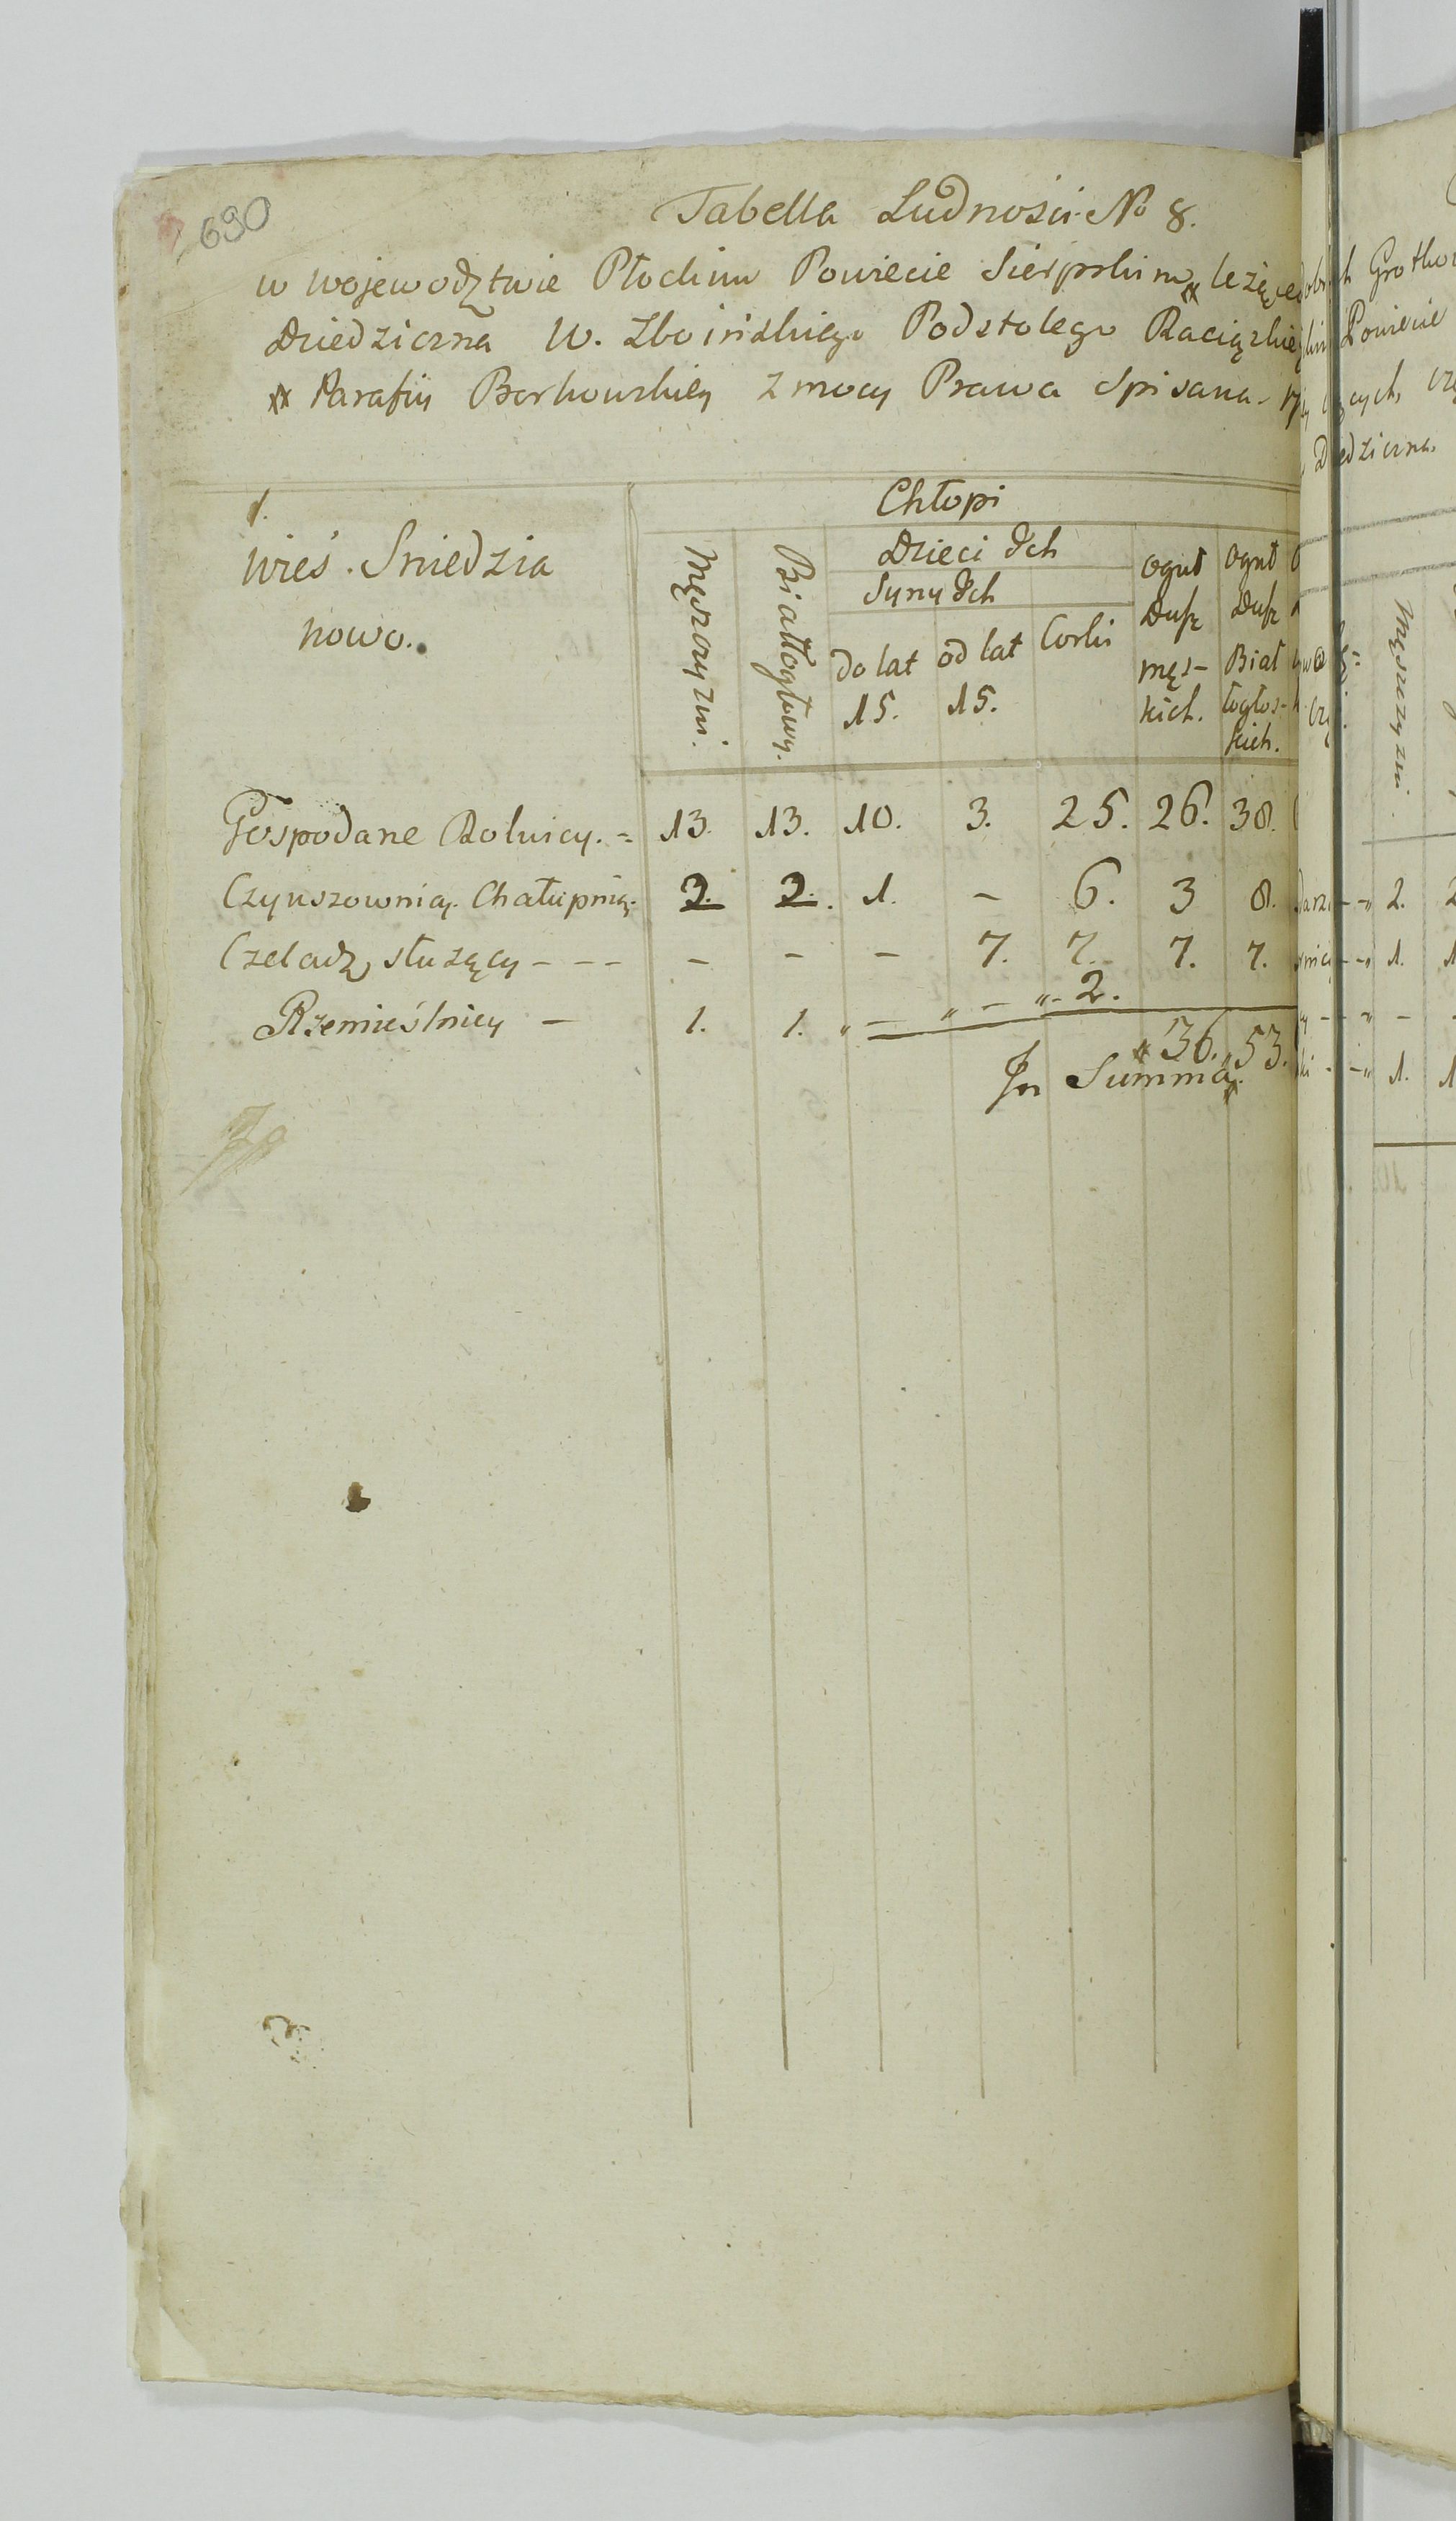 690
Tabella Ludności No 8.
w Wojewodztwie Płockim Powiecie Sierpskim leżące
Dziedziczna W. Zboińskiego Podstolego Raciąskie
Parafij Borkowskiey z mocy Prawa Spisana
1.
Wieś. Sniedzia
nowo.
Chłopi
Męszczyzni.
Białłogłowy.
Dzieci Ich
Syny Ich
do lat 15.
od lat 15.
Corki
oguł Dusz męs-kich.
oguł Dusz Biał łogłos-kich.
Gospodarze Rolnicy. = 13. 13. 10. 3. 25. 26. 38.
Czynszownicy. Chałupnicy. 2. 2. 1. - 6. 3 8.
Czeladz służący - - - - - - 7. 7. 7. 7.
Rzemieślnicy - 1. 1. " - " - " - 2.
36. 53.
In Summa
Grotko
Powiecie
Męszczyzni.
2. 2
1. 1
- -
1. 1